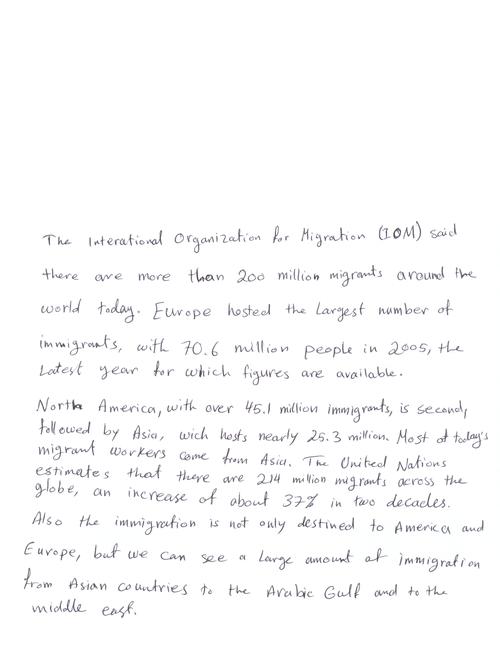 The Interational Organization for Migration (IOM) said
there are more than 200 million migrants around the
world today. Europe hosted the Largest number of
immigrants, with 70.6 million people in 2005, the
Latest year for which figures are available.
North America, with over 45.1 million immigrants, is second,
followed by Asia, wich hosts nearly 25.3 million. Most of today's
migrant workers come from Asia. The United Nations
estimates that there are 214 million migrants across the
globe, an increase of about 37% in two decades.
Also the immigration is not only destined to America and
Europe, but we can see a large amount of immigration
from Asian countries to the Arabic Gulf and to the
middle east.